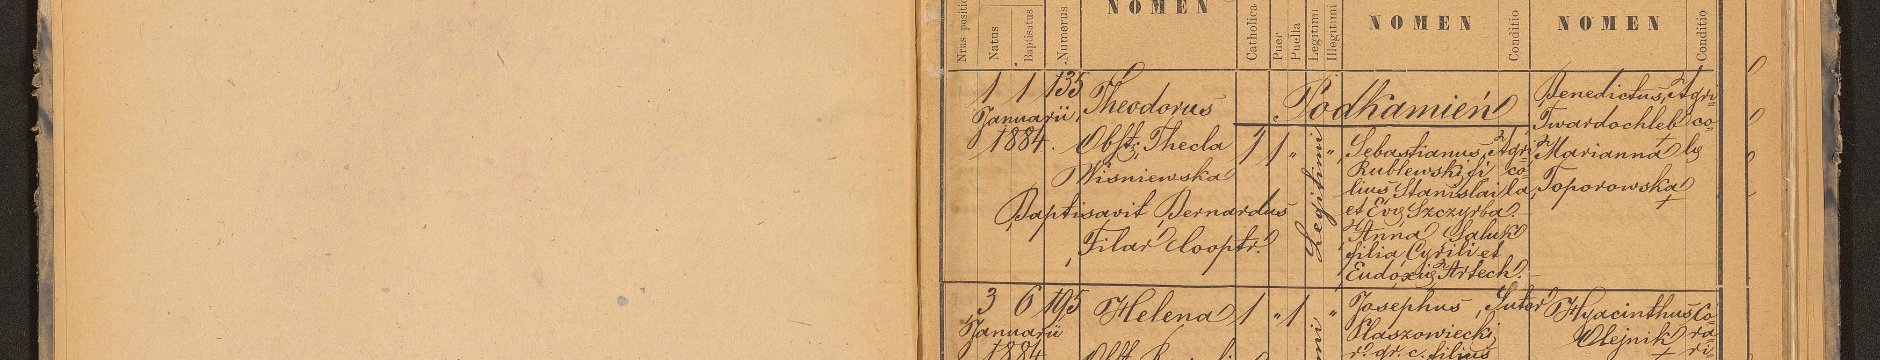 Nrus positio
Natus
Baptisatus
Numerus
NOMEN
Catholica
Puer
Puella
Legitimi
Illegitimi
NOMEN
Conditio
NOMEN
Conditio
1 1 135
Januarii
1884.
Theodorus
Obst. Thecla
Wisniewska
Baptisavit Bernardus
Filar Cooptr.
1 1 " "
Legitimi
Podkamień
Sebastianus
Rublewski fi
lius Stanislai
et Evae Szczyrba.
Anna Saluk
filia Cyrili et
Eudoxiae Artech.
Agri
co
la
Benedictus
Twardochleb
Marianna
Toporowska
Agri
co
lae
3 6 195
Januarii
1884
Helena
1 " 1 "
Josephus
Sutor
r. gr. c. filius
Hyacinthus
Olejnik